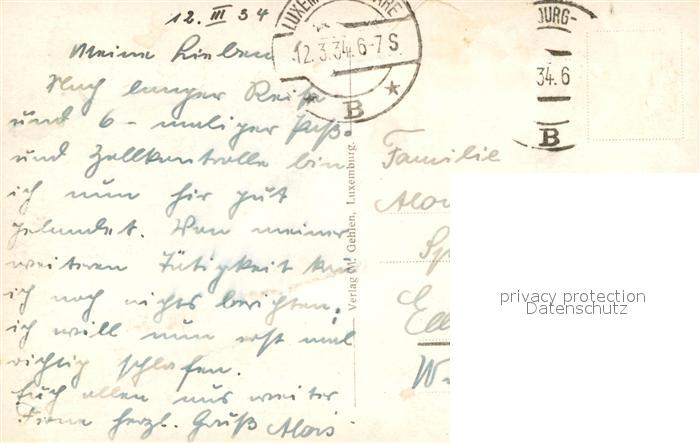 12. III 34
Meine Lieben
Nach langer Reise
und 6-maliger Paß-
und Zollkontrolle bin
ich nun hir gut
gelandet. Von meiner
weiteren Tätigkeit kann
ich noch nichts berichten.
ich will nun erst mal
richtig schlafen.
Euch allen aus weiter
Ferne herzl. Gruß Alois
LUXEMBOURG-GARE
12.3.34. 6-7 S
B
Verlag M. Gehlen, Luxemburg.
OURG-
34. 6
B
Familie
Aloi
Sp
Ell
privacy protection
Datenschutz